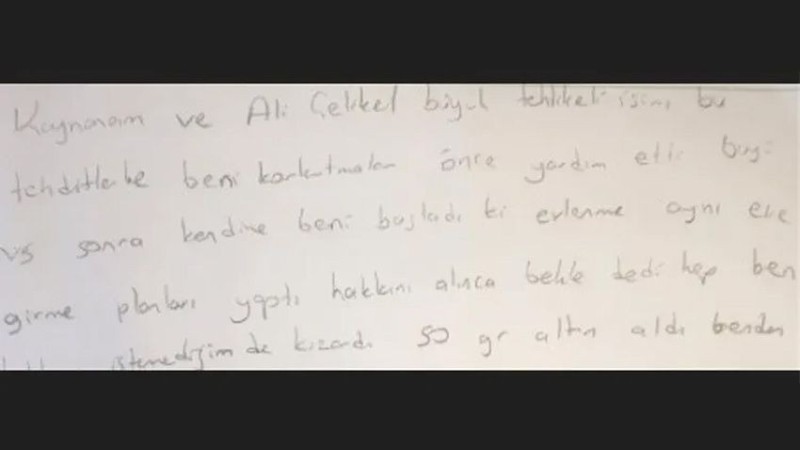 Kaynanam ve Ali Çelikel büyük tehlikeli isim bu
tehditlerle beni korkutmaları önce yardım etti büyü
vs sonra kendine beni bağladı ki evlenme aynı eve
girme planları yaptı hakkını alınca bekle dedi hep ben
istemediğim de kızardı 50 gr altın aldı benden